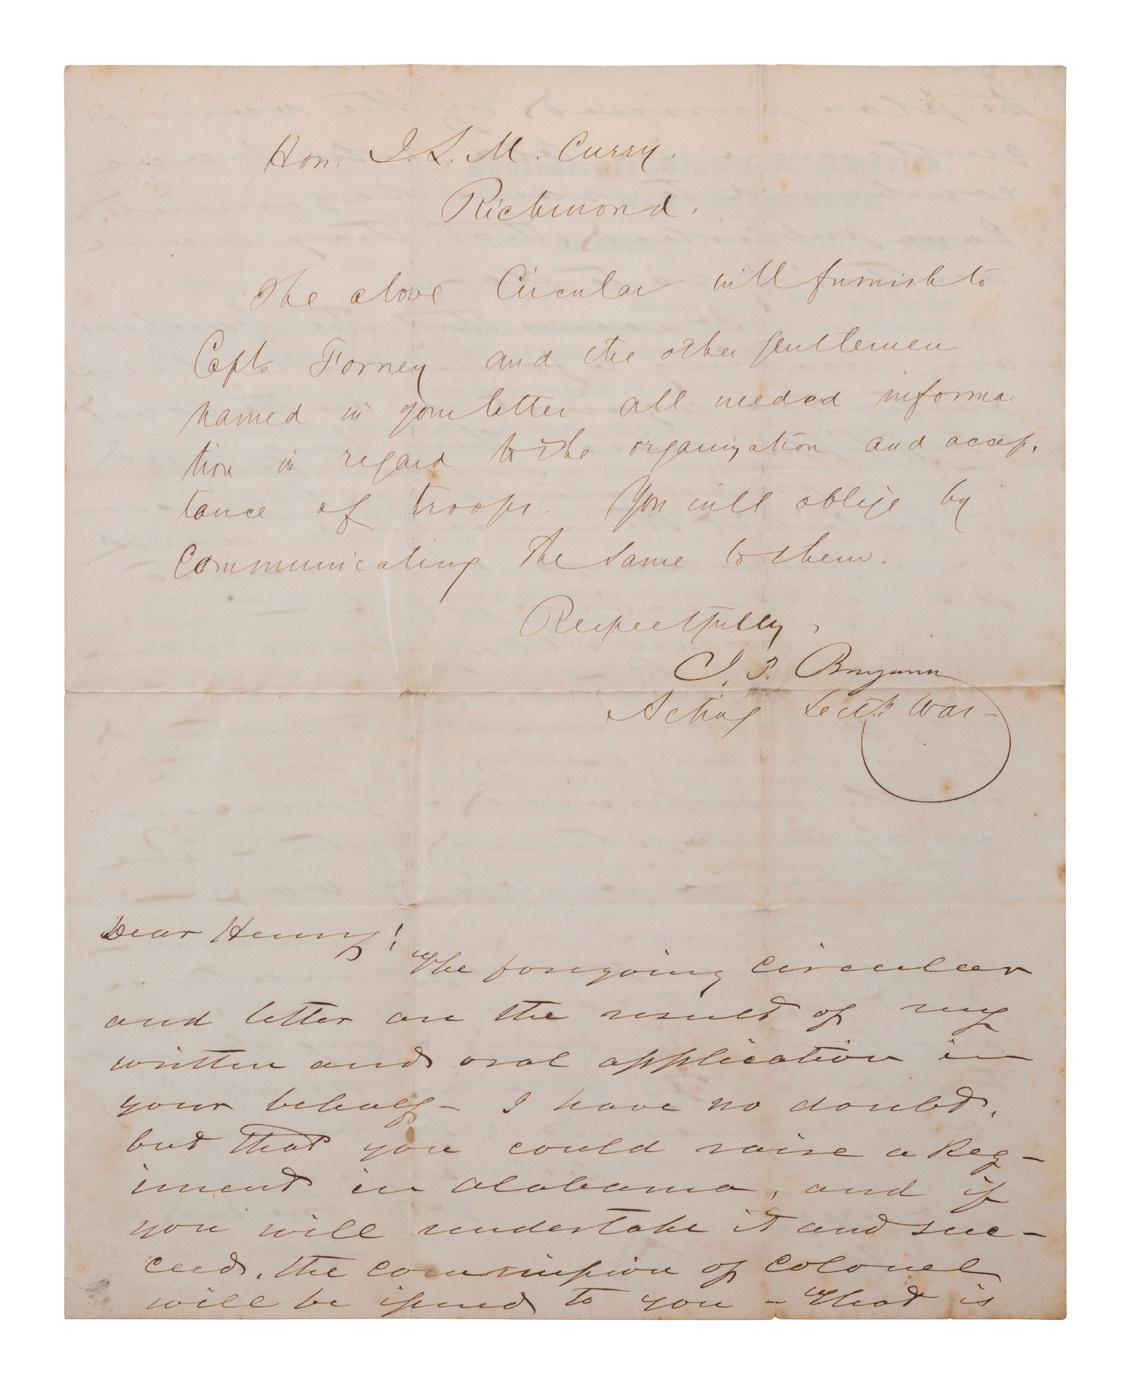 Hon. J. L. M. Curry.
Richmond.
The above Circular will furnish to
Capt. Forney and the other gentlemen
named in your letter all needed informa-
tion in regard to the organization and accep-
tance of troops. You will oblige by
Communicating the same to them.
Respectfully,
J. P. Benjamin
Acting Secty War-
Dear Henry!
The foregoing circular
and letter are the result of my
written and oral application in
your behalf- I have no doubt,
but that you could raise a Reg-
iment in Alabama, and if
you will undertake it and suc-
ceed, the commission of Colonel
will be issued to you - That is